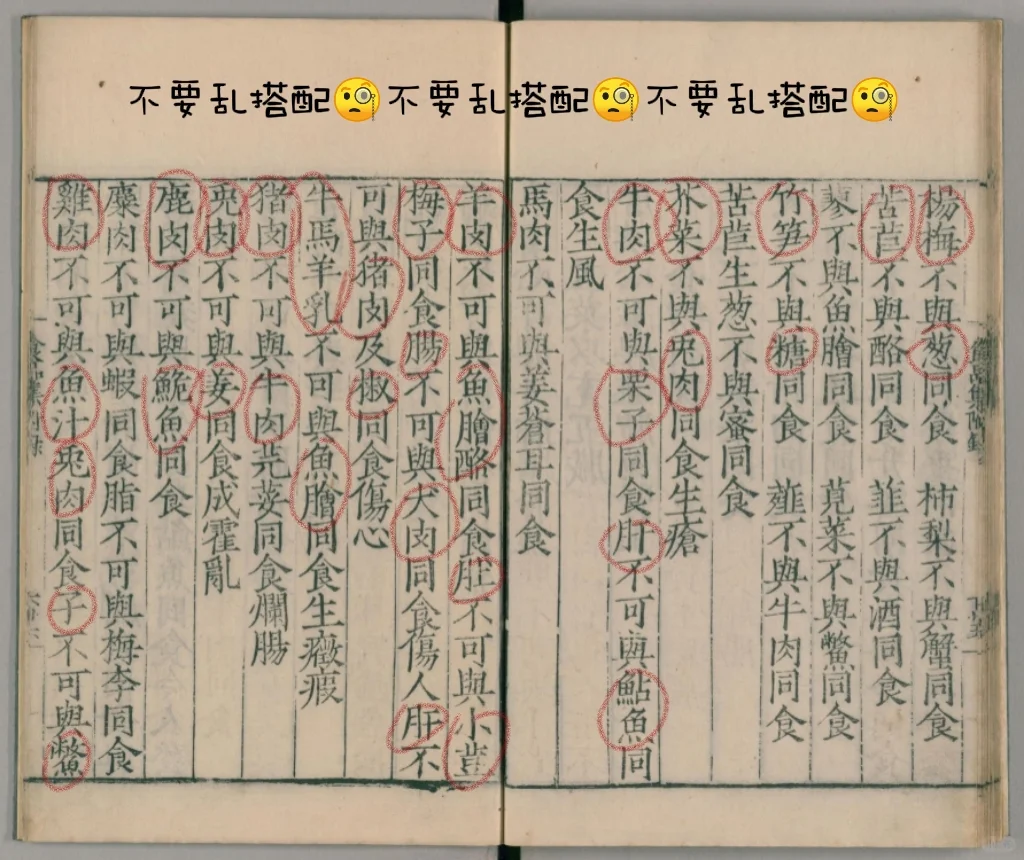 不要乱搭配🧐不要乱搭配🧐不要乱搭配🧐
楊梅不與葱同食 柿梨不與蟹同食
苦苣不與酪同食 韮不與酒同食
蓼不與魚膾同食 莧菜不與鱉同食
竹笋不與糖同食 薤不與牛肉同食
苦苣生葱不與蜜同食
芥菜不與兎肉同食生瘡
牛肉不可與栗子同食肝不可與鮎魚同
食生風
馬肉不可與姜蒼耳同食
羊肉不可與魚膾酪同食肚不可與小荳
梅子同食腸不可與犬肉同食傷人肝不
可與猪肉及椒同食傷心
牛馬羊乳不可與魚膾同食生癥瘕
猪肉不可與牛肉芫荽同食爛腸
兎肉不可與姜同食成霍亂
鹿肉不可與鮠魚同食
麋肉不可與蝦同食脂不可與梅李同食
雞肉不可與魚汁兎肉同食子不可與鱉